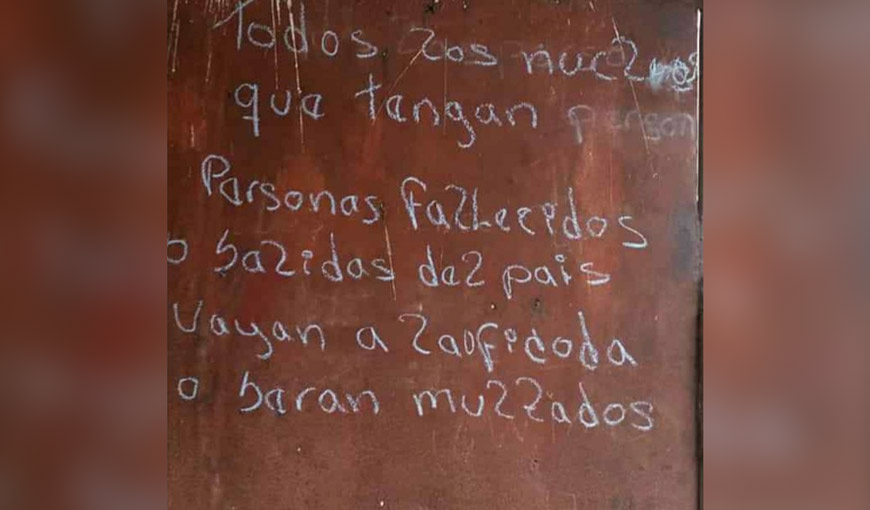 Todos los nucleos
que tengan person
Personas fallecidos
o salidas del pais
vayan a laoficoda
o seran multados